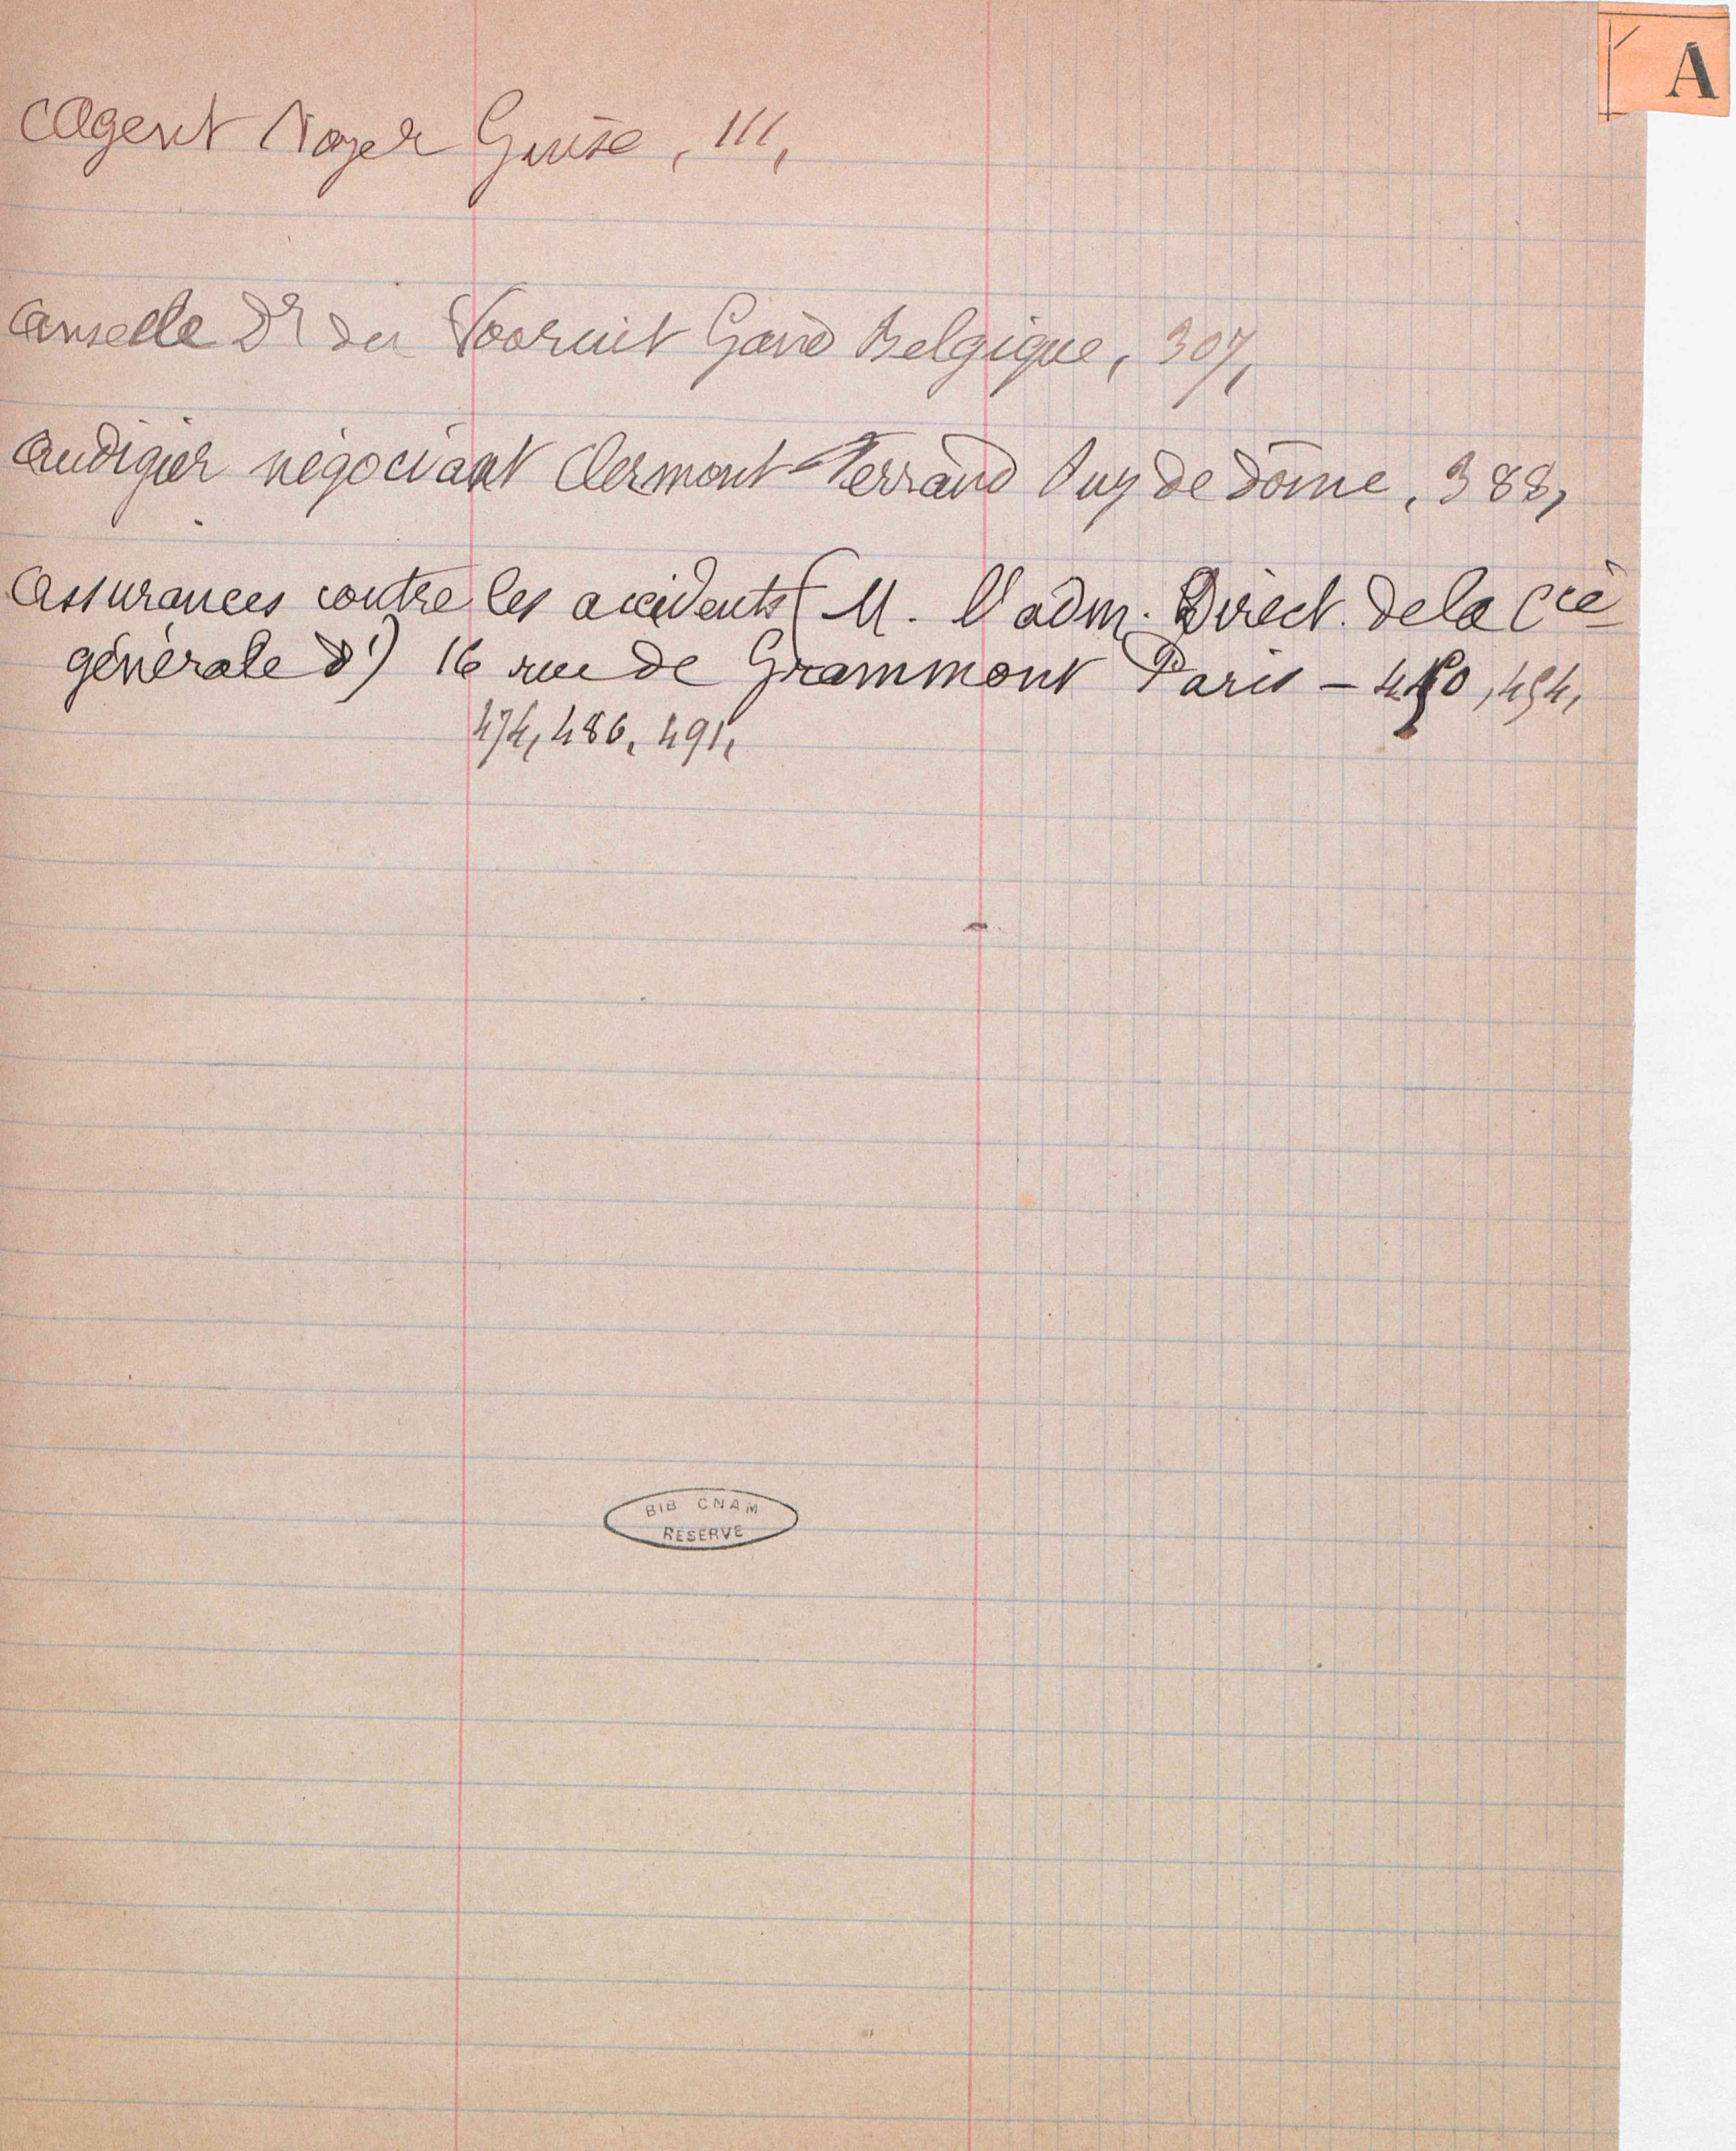 A
Agent Voyer Guise, 111,
Anselle Dr du Vooruit Gand Belgique, 307,
Audigier négociant Clermont-Ferrand Puy de Dôme, 388,
Assurances contre les accidents (M. l'adm. Direct. de la Cie
générale d') 16 rue de Grammont Paris – 450, 454,
474, 486, 491,
BIB CNAM
RESERVE